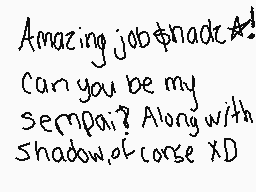 Amazing job $hadz☆!
Can you be my
sempai? Along with
Shadow, of corse XD